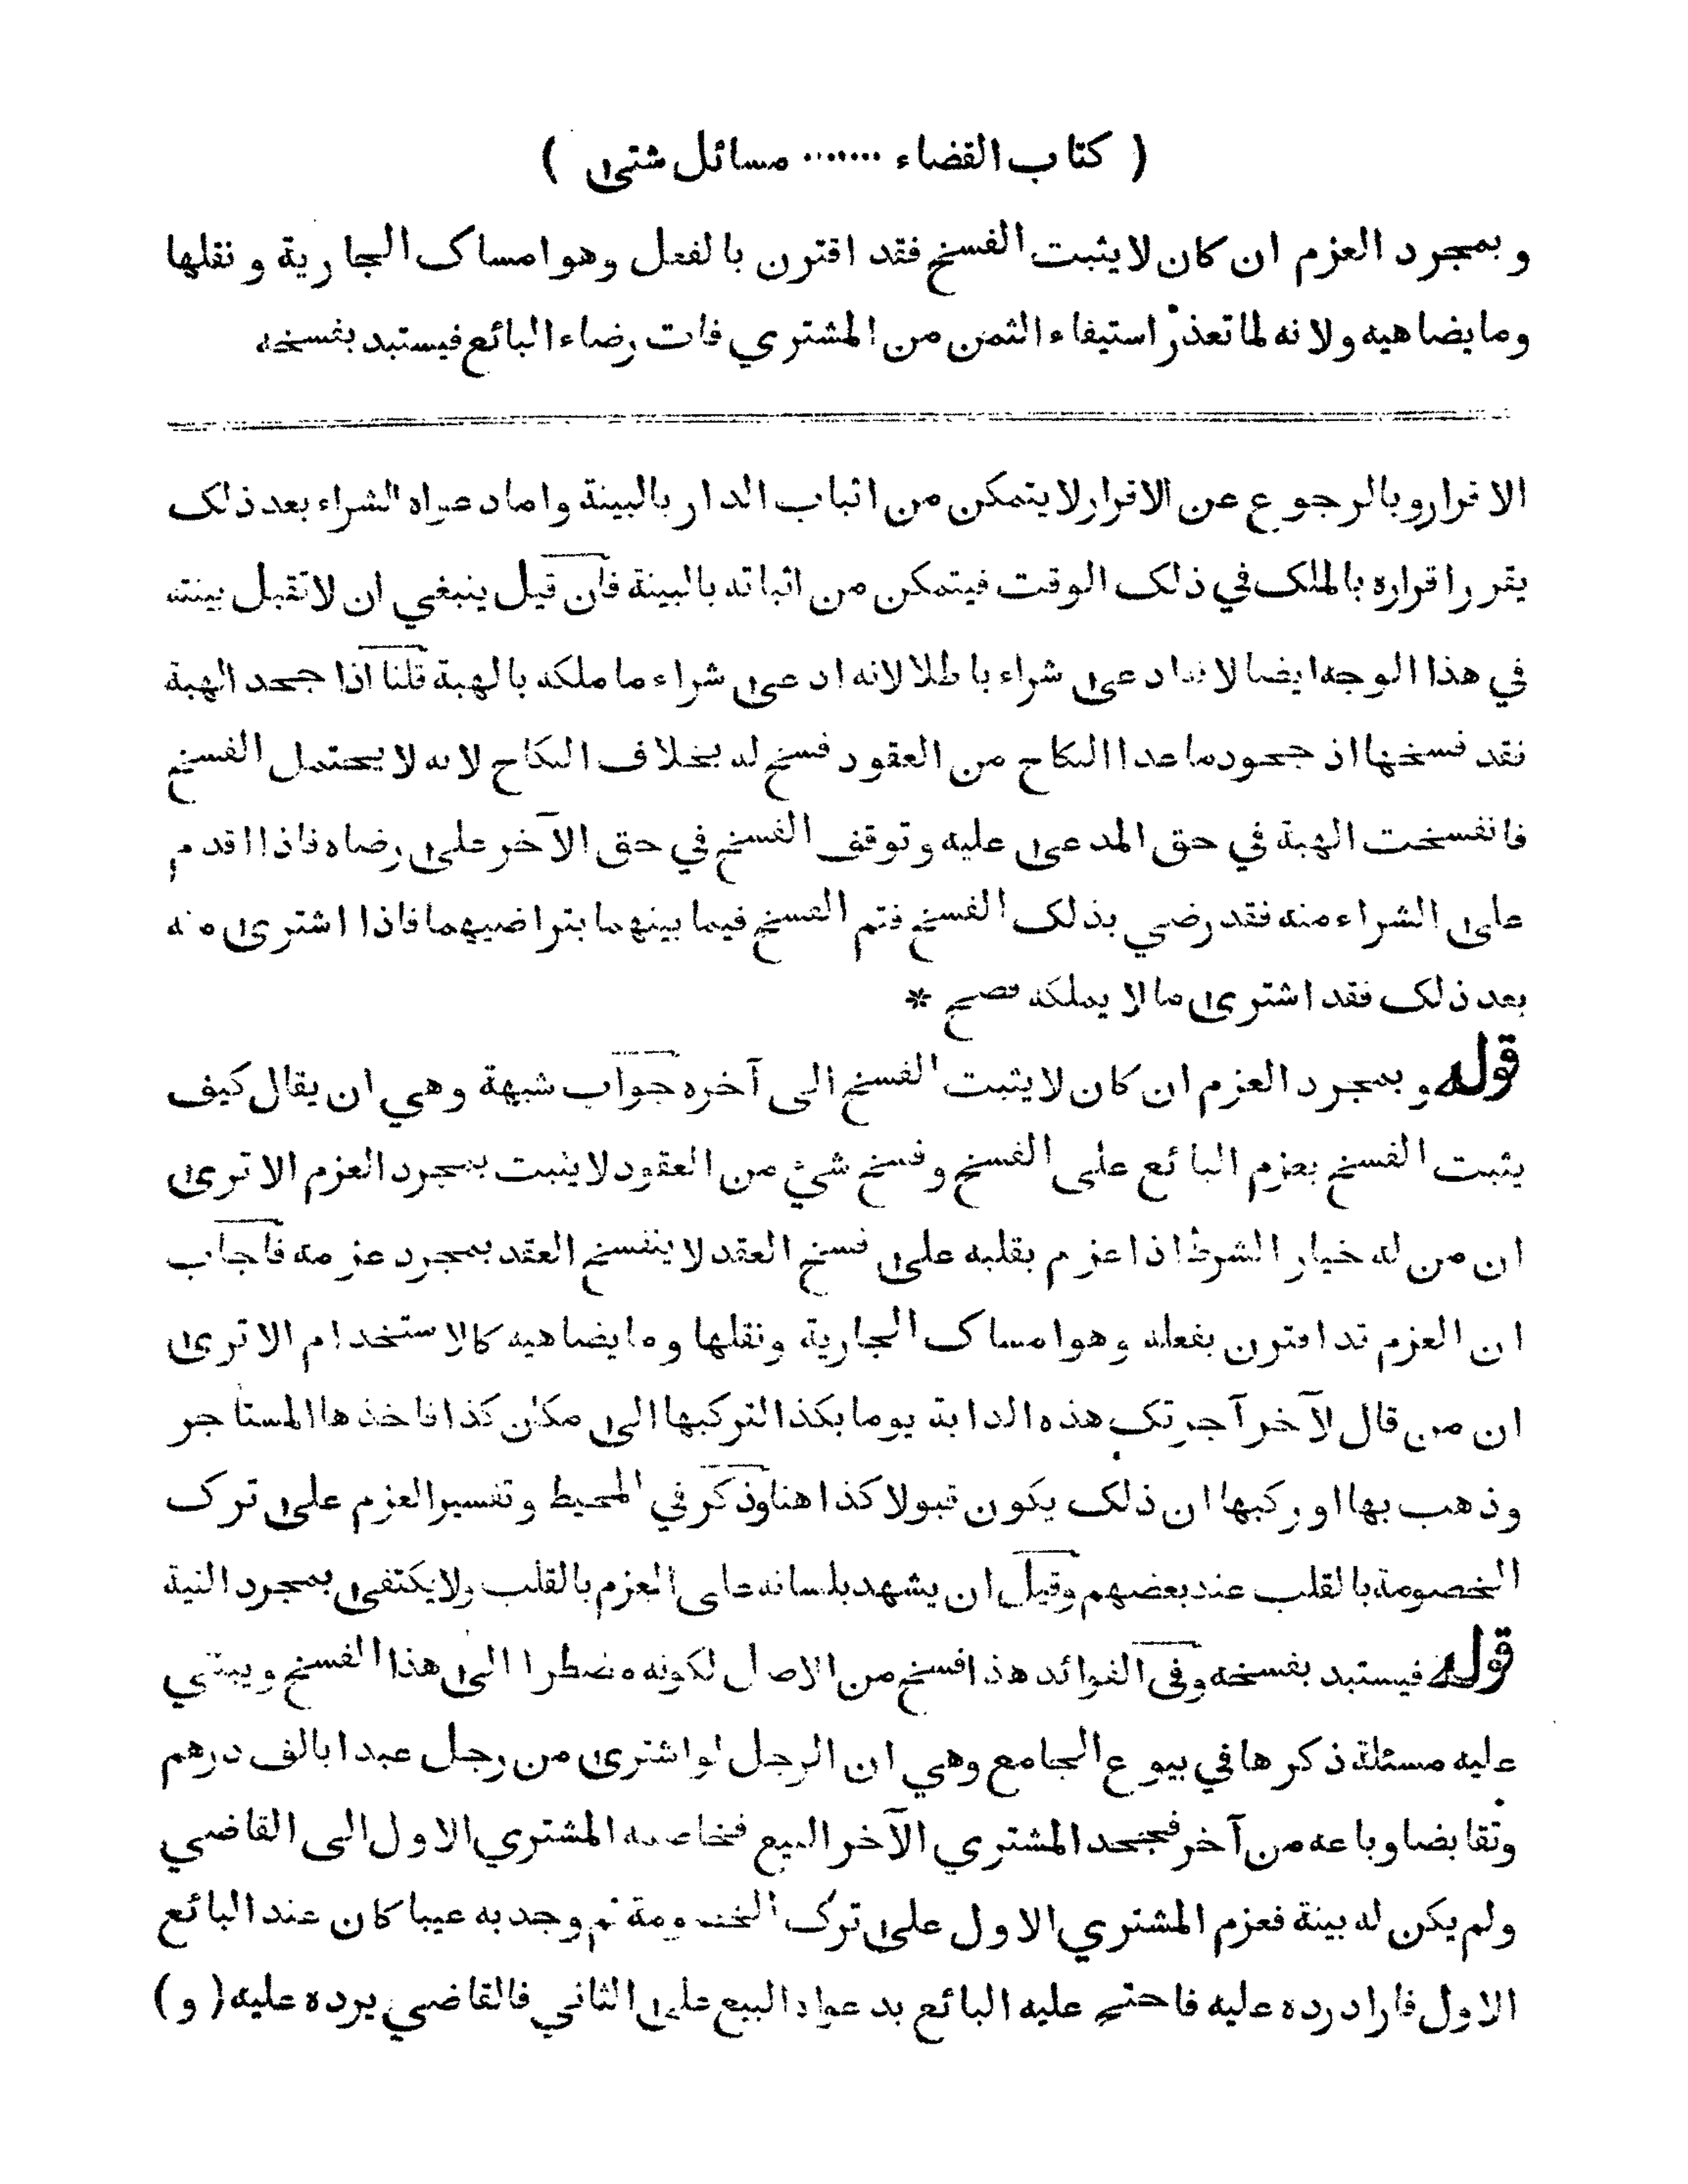 ( كتاب القضاء ....... مسائل شتى )
و بمجرد العزم ان كان لا يثبت الفسخ فقد اقترن بالفعل وهو امساك الجارية و نقلها
وما يضاهيه ولانه لما تعذر استيفاء الثمن من المشتري فات رضاء البائع فيستبد بفسخه
الاقرار وبالرجوع عن الاقرار لا يتمكن من اثبات الدار بالبينة واما دعواه الشراء بعد ذلك
يقرر اقراره بالملك في ذلك الوقت فيتمكن من اثباته بالبينة فان قيل ينبغي ان لا تقبل بينته
في هذا الوجه ايضا لانه ادعى شراء باطلا لانه ادعى شراء ما ملكه بالهبة قلنا اذا جحد الهبة
فقد فسخها اذ جحود ما عدا النكاح من العقود فسخ له بخلاف النكاح لانه لا يحتمل الفسخ
فانفسخت الهبة في حق المدعى عليه وتوقف الفسخ في حق الآخر على رضاه فاذا اقدم
على الشراء منه فقد رضي بذلك الفسخ فتم الفسخ فيما بينهما بتراضيهما فاذا اشترى منه
بعد ذلك فقد اشترى ما لا يملكه فصح *
قوله و بمجرد العزم ان كان لا يثبت الفسخ الى آخره جواب شبهة وهي ان يقال كيف
يثبت الفسخ بعزم البائع على الفسخ وفسخ شيء من العقود لا يثبت بمجرد العزم الا ترى
ان من له خيار الشرط اذا عزم بقلبه على فسخ العقد لا ينفسخ العقد بمجرد عزمه فاجاب
ان العزم قد اقترن بفعله وهو امساك الجارية ونقلها وما يضاهيه كالاستخدام الا ترى
ان من قال لآخر آجرتك هذه الدابة يوما بكذا لتركبها الى مكان كذا فاخذها المستاجر
وذهب بها او ركبها ان ذلك يكون قبولا كذا هنا وذكر في المحيط وتفسير العزم على ترك
الخصومة بالقلب عند بعضهم وقيل ان يشهد بلسانه على العزم بالقلب ولا يكتفى بمجرد النية
قوله فيستبد بفسخه وفى الفوائد هذا فسخ من الاصل لكونه مضطرا الى هذا الفسخ ويبتني
عليه مسئلة ذكرها في بيوع الجامع وهي ان الرجل لو اشترى من رجل عبدا بالف درهم
وتقابضا وباعه من آخر فجحد المشتري الآخر البيع فخاصمه المشتري الاول الى القاضي
ولم يكن له بينة فعزم المشتري الاول على ترك الخصومة ثم وجد به عيبا كان عند البائع
الاول فاراد رده عليه فاحتج عليه البائع بدعواه البيع على الثاني فالقاضي يرده عليه ( و )